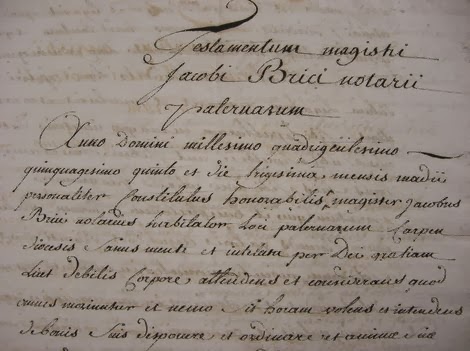 Testamentum magistri
Jacobi Brici notarii
palernarum
Anno Domini millesimo quadrigentesimo
quinquagesimo quinto et die trigesima mensis madii
personaliter Constitutus honorabilis magister jacobus
Bricii notarius habitator loci palernarum Carpen
diocesis Sanus mente et intellectu per Dei gratiam
licet debilis Corpore, attendens et considerans quod
omnes et nemo horam volens et intendens
de bonis suis disponere et ordinare et anime sue